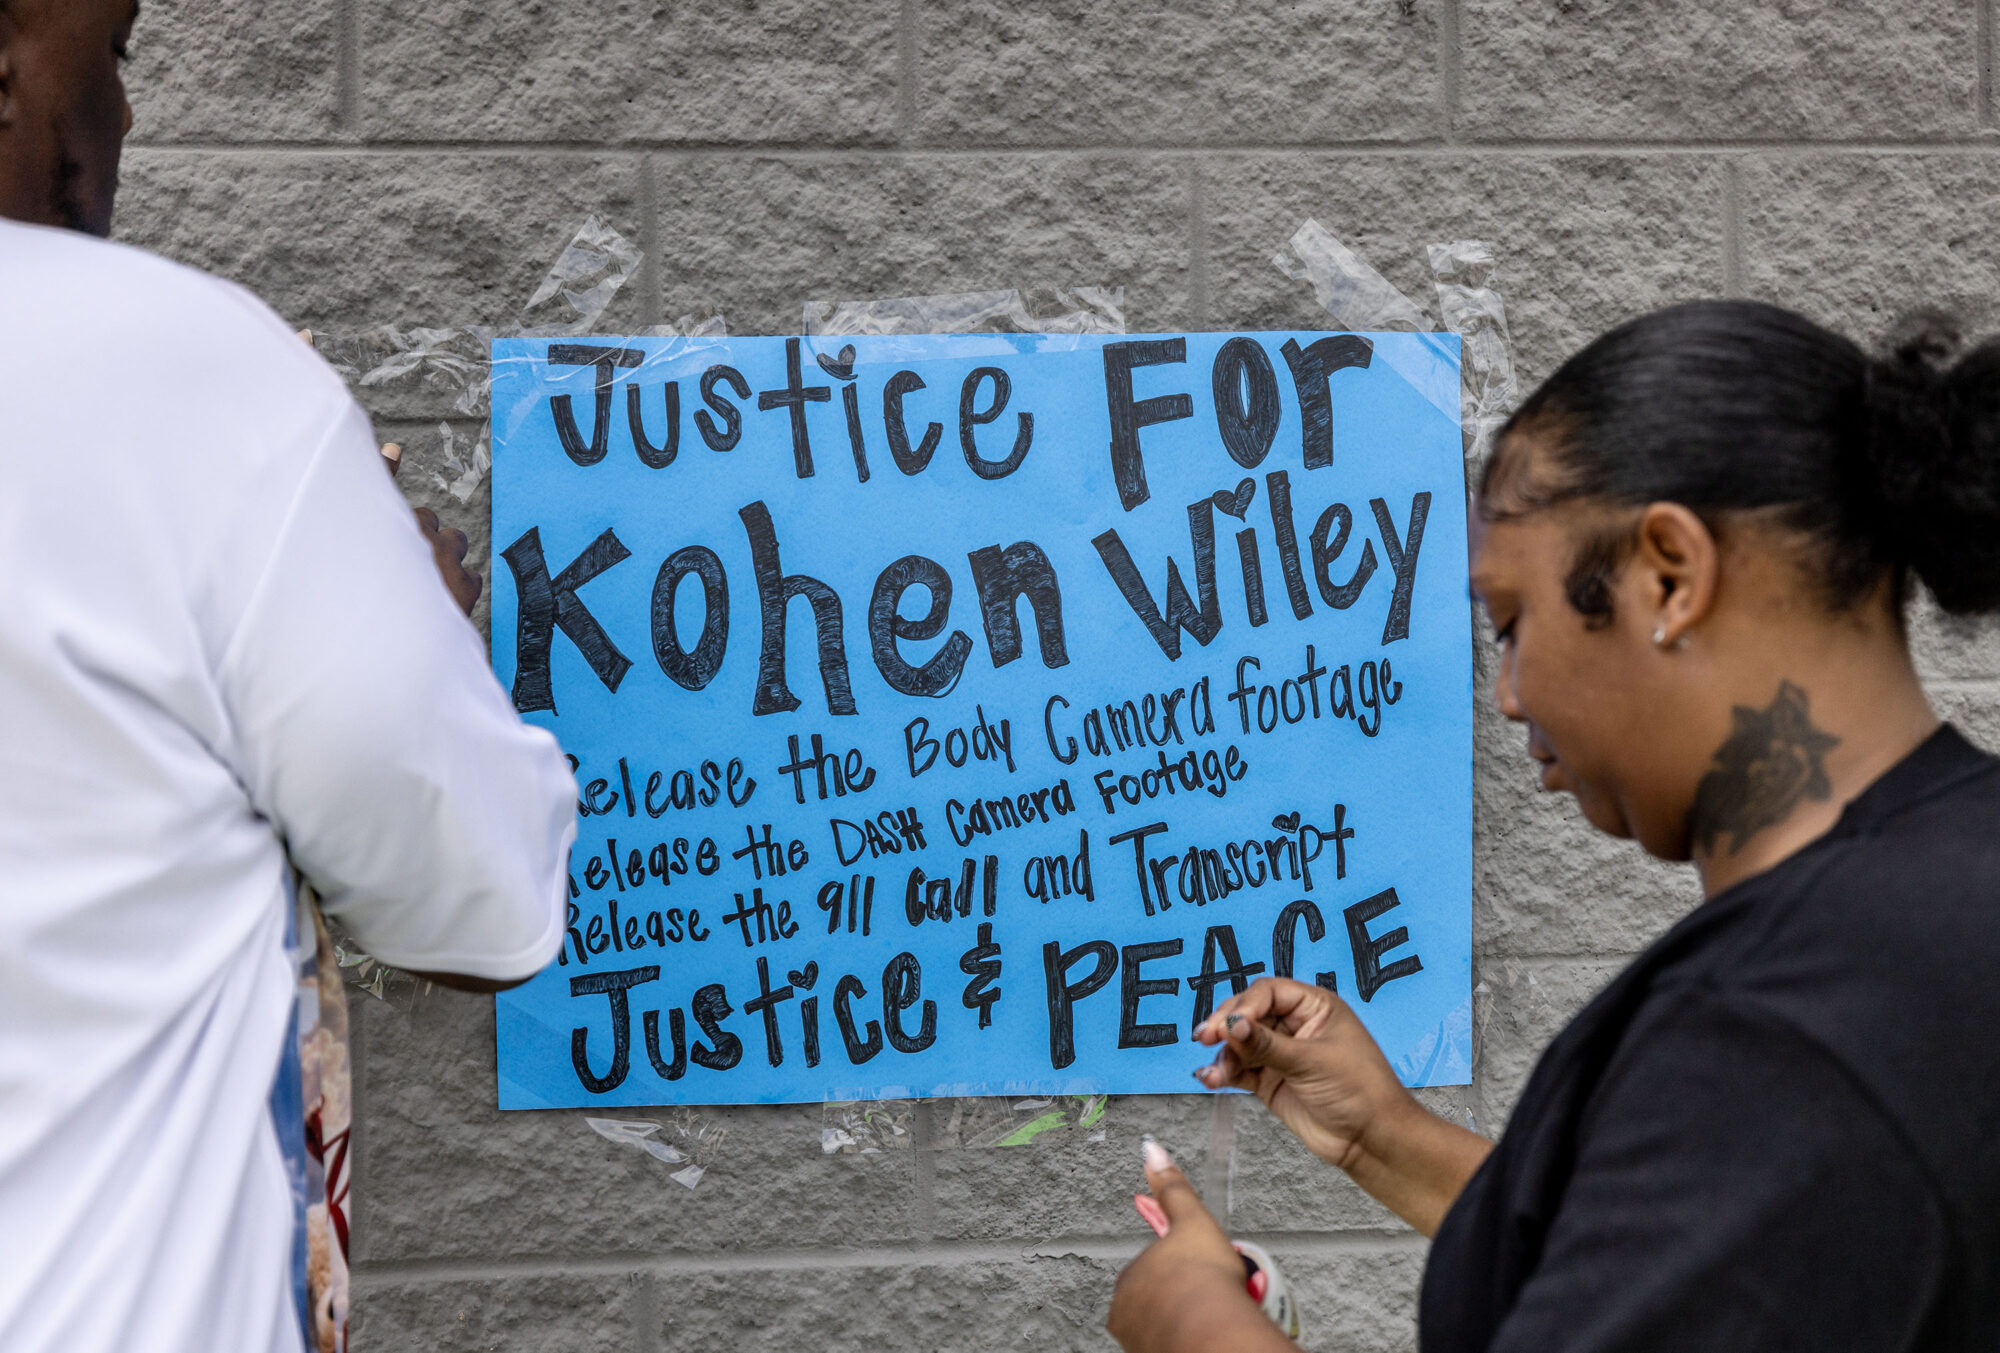 Justice For
Kohen Wiley
Release the Body Camera footage
Release the DASH Camera Footage
Release the 911 Call and Transcript
Justice & PEACE